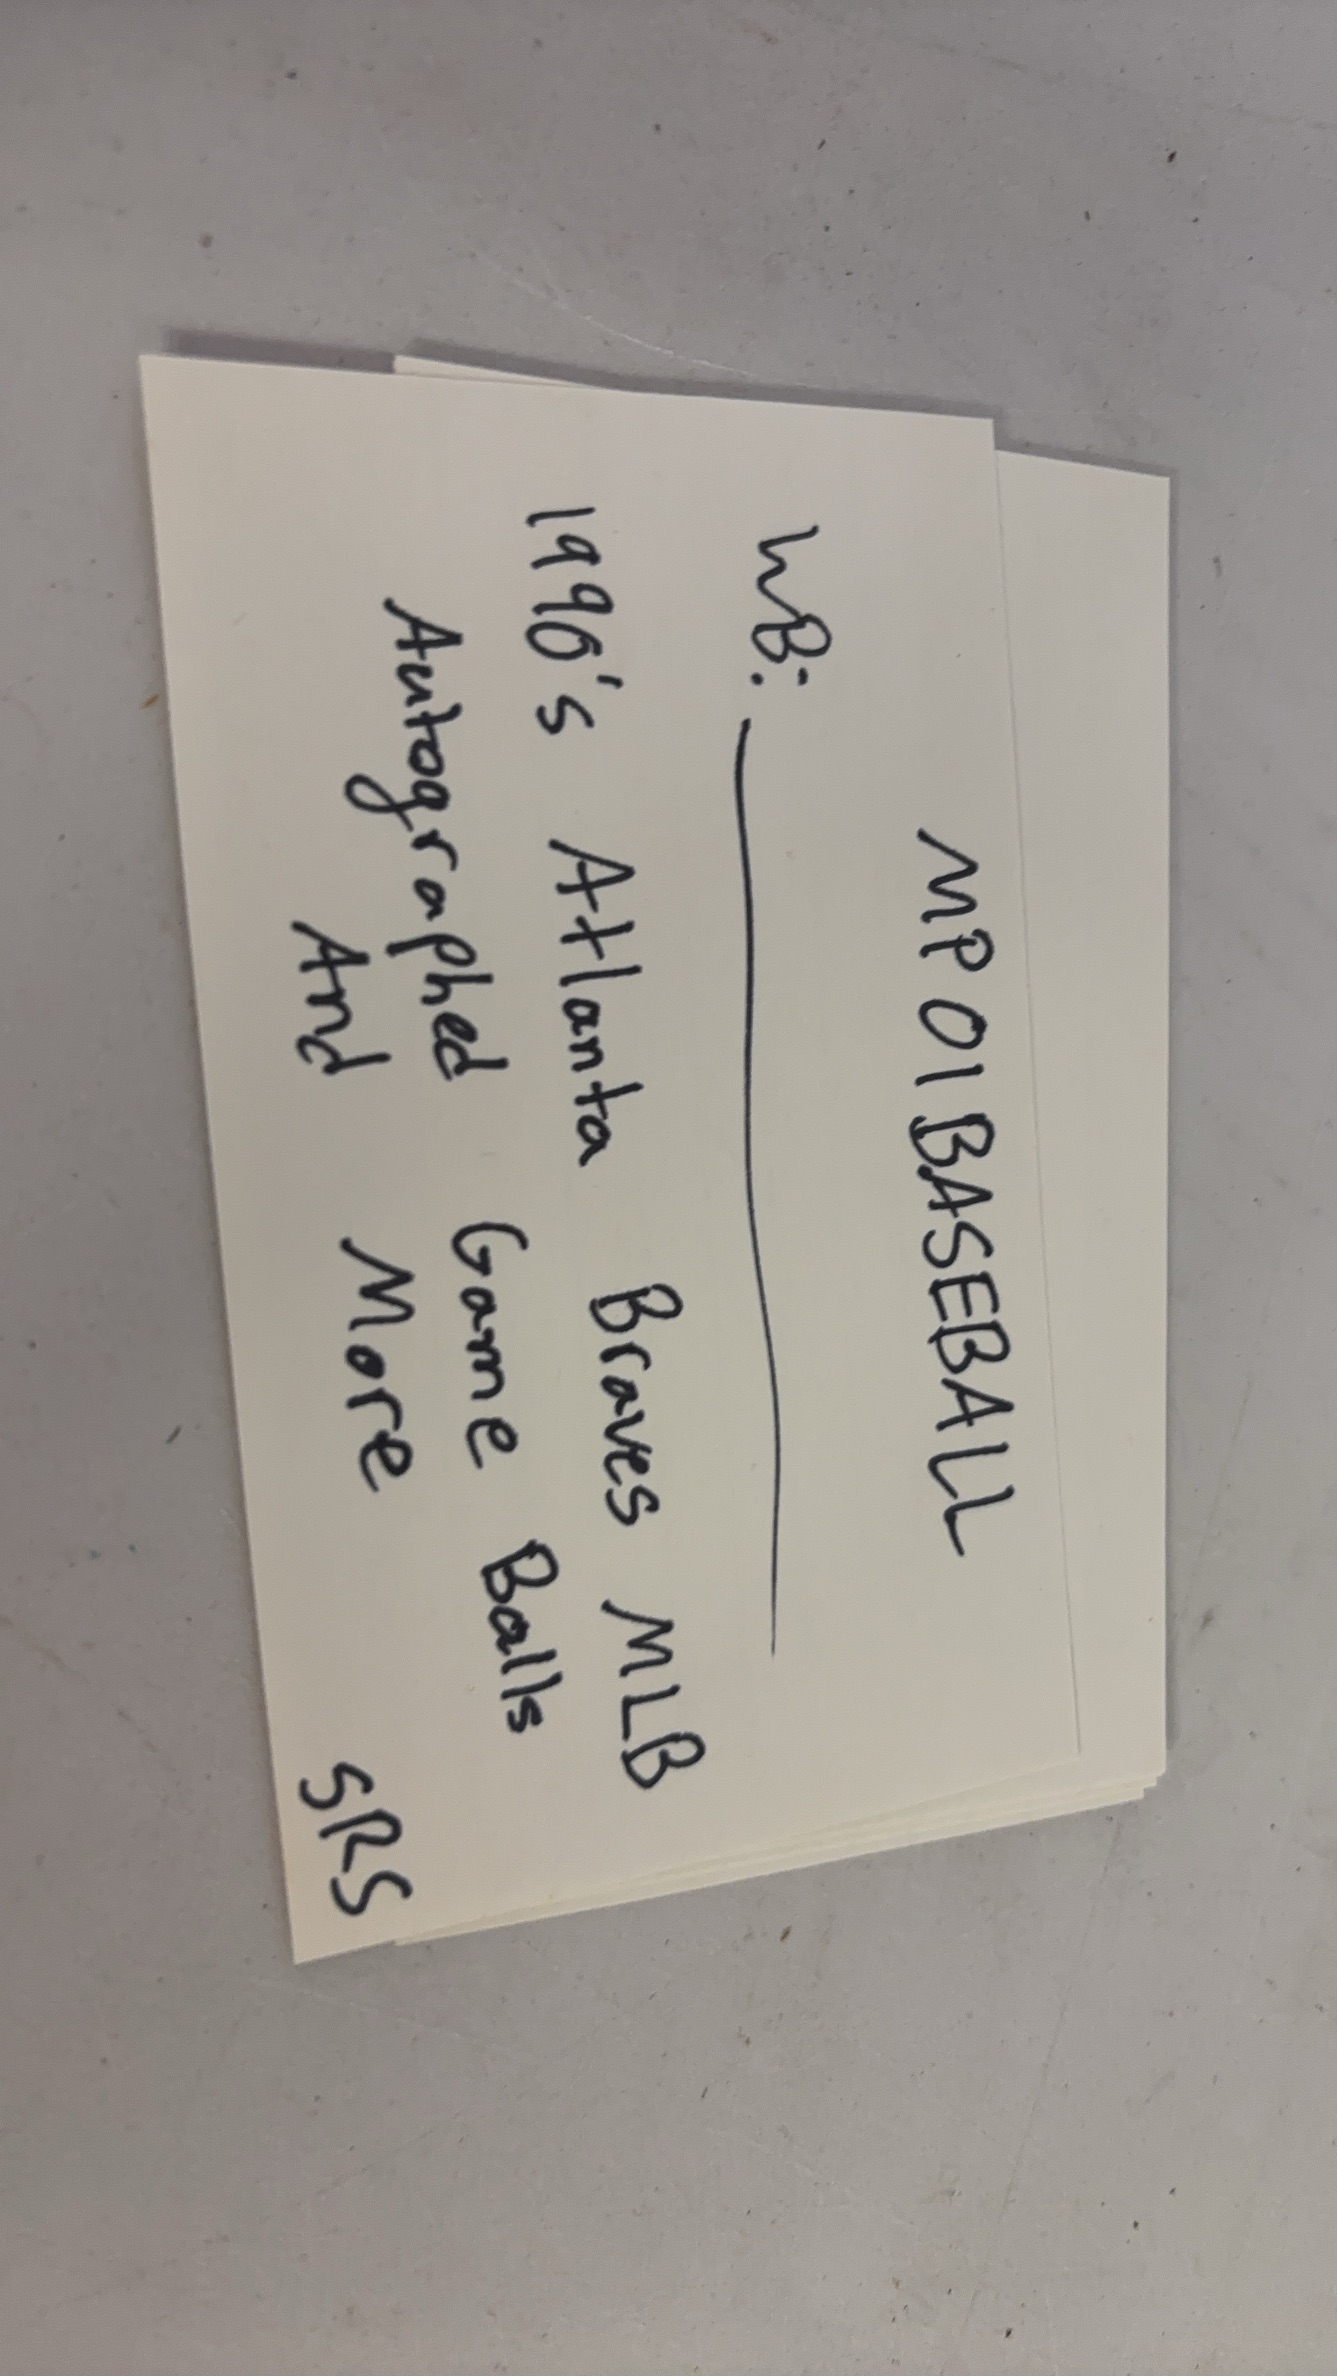 MP01BASEBALL
WB:
1990's Atlanta Braves MLB
Autographed Game Balls
And More
SRS